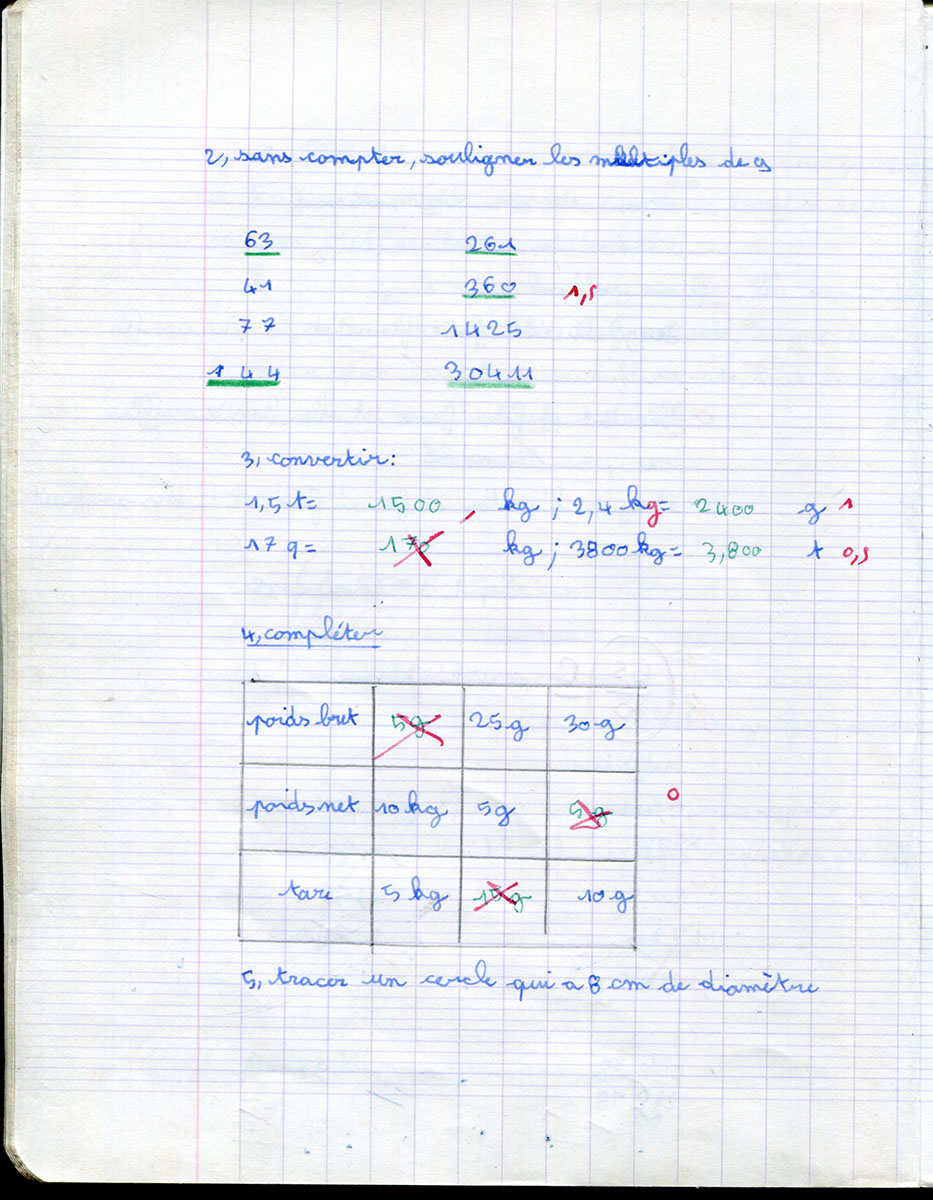 2, sans compter, souligner les multiples de 9
63 261
41 360 1,5
77 1425
144 30411
3, convertir:
1,5 t= 1500 kg ; 2,4 kg= 2400 g 1
17 q= 170 kg ; 3800 kg= 3,800 t 0,5
4, compléter
poids brut 5g 25g 30g
poids net 10 kg 5g 5g 0
tare 5 kg 15g 10g
5, tracer un cercle qui a 8 cm de diamètre